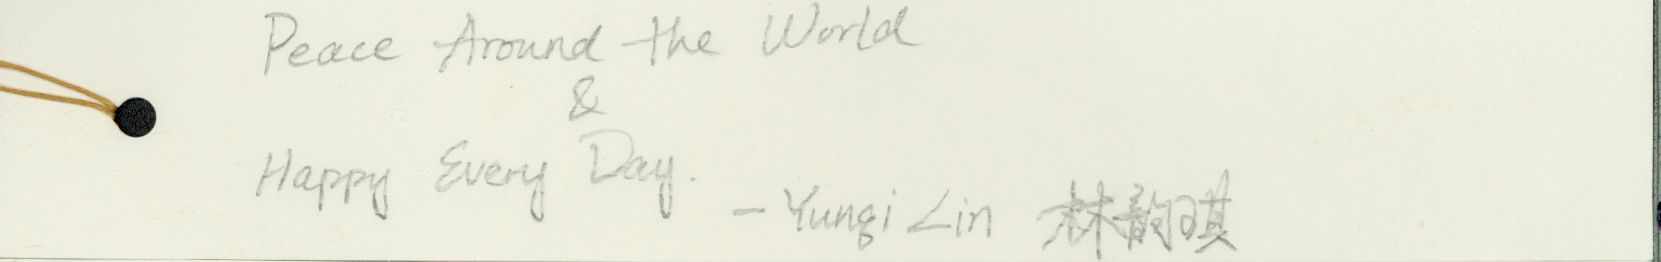 Peace Around the World
&
Happy Every Day.
- Yunqi Lin 林韵琪